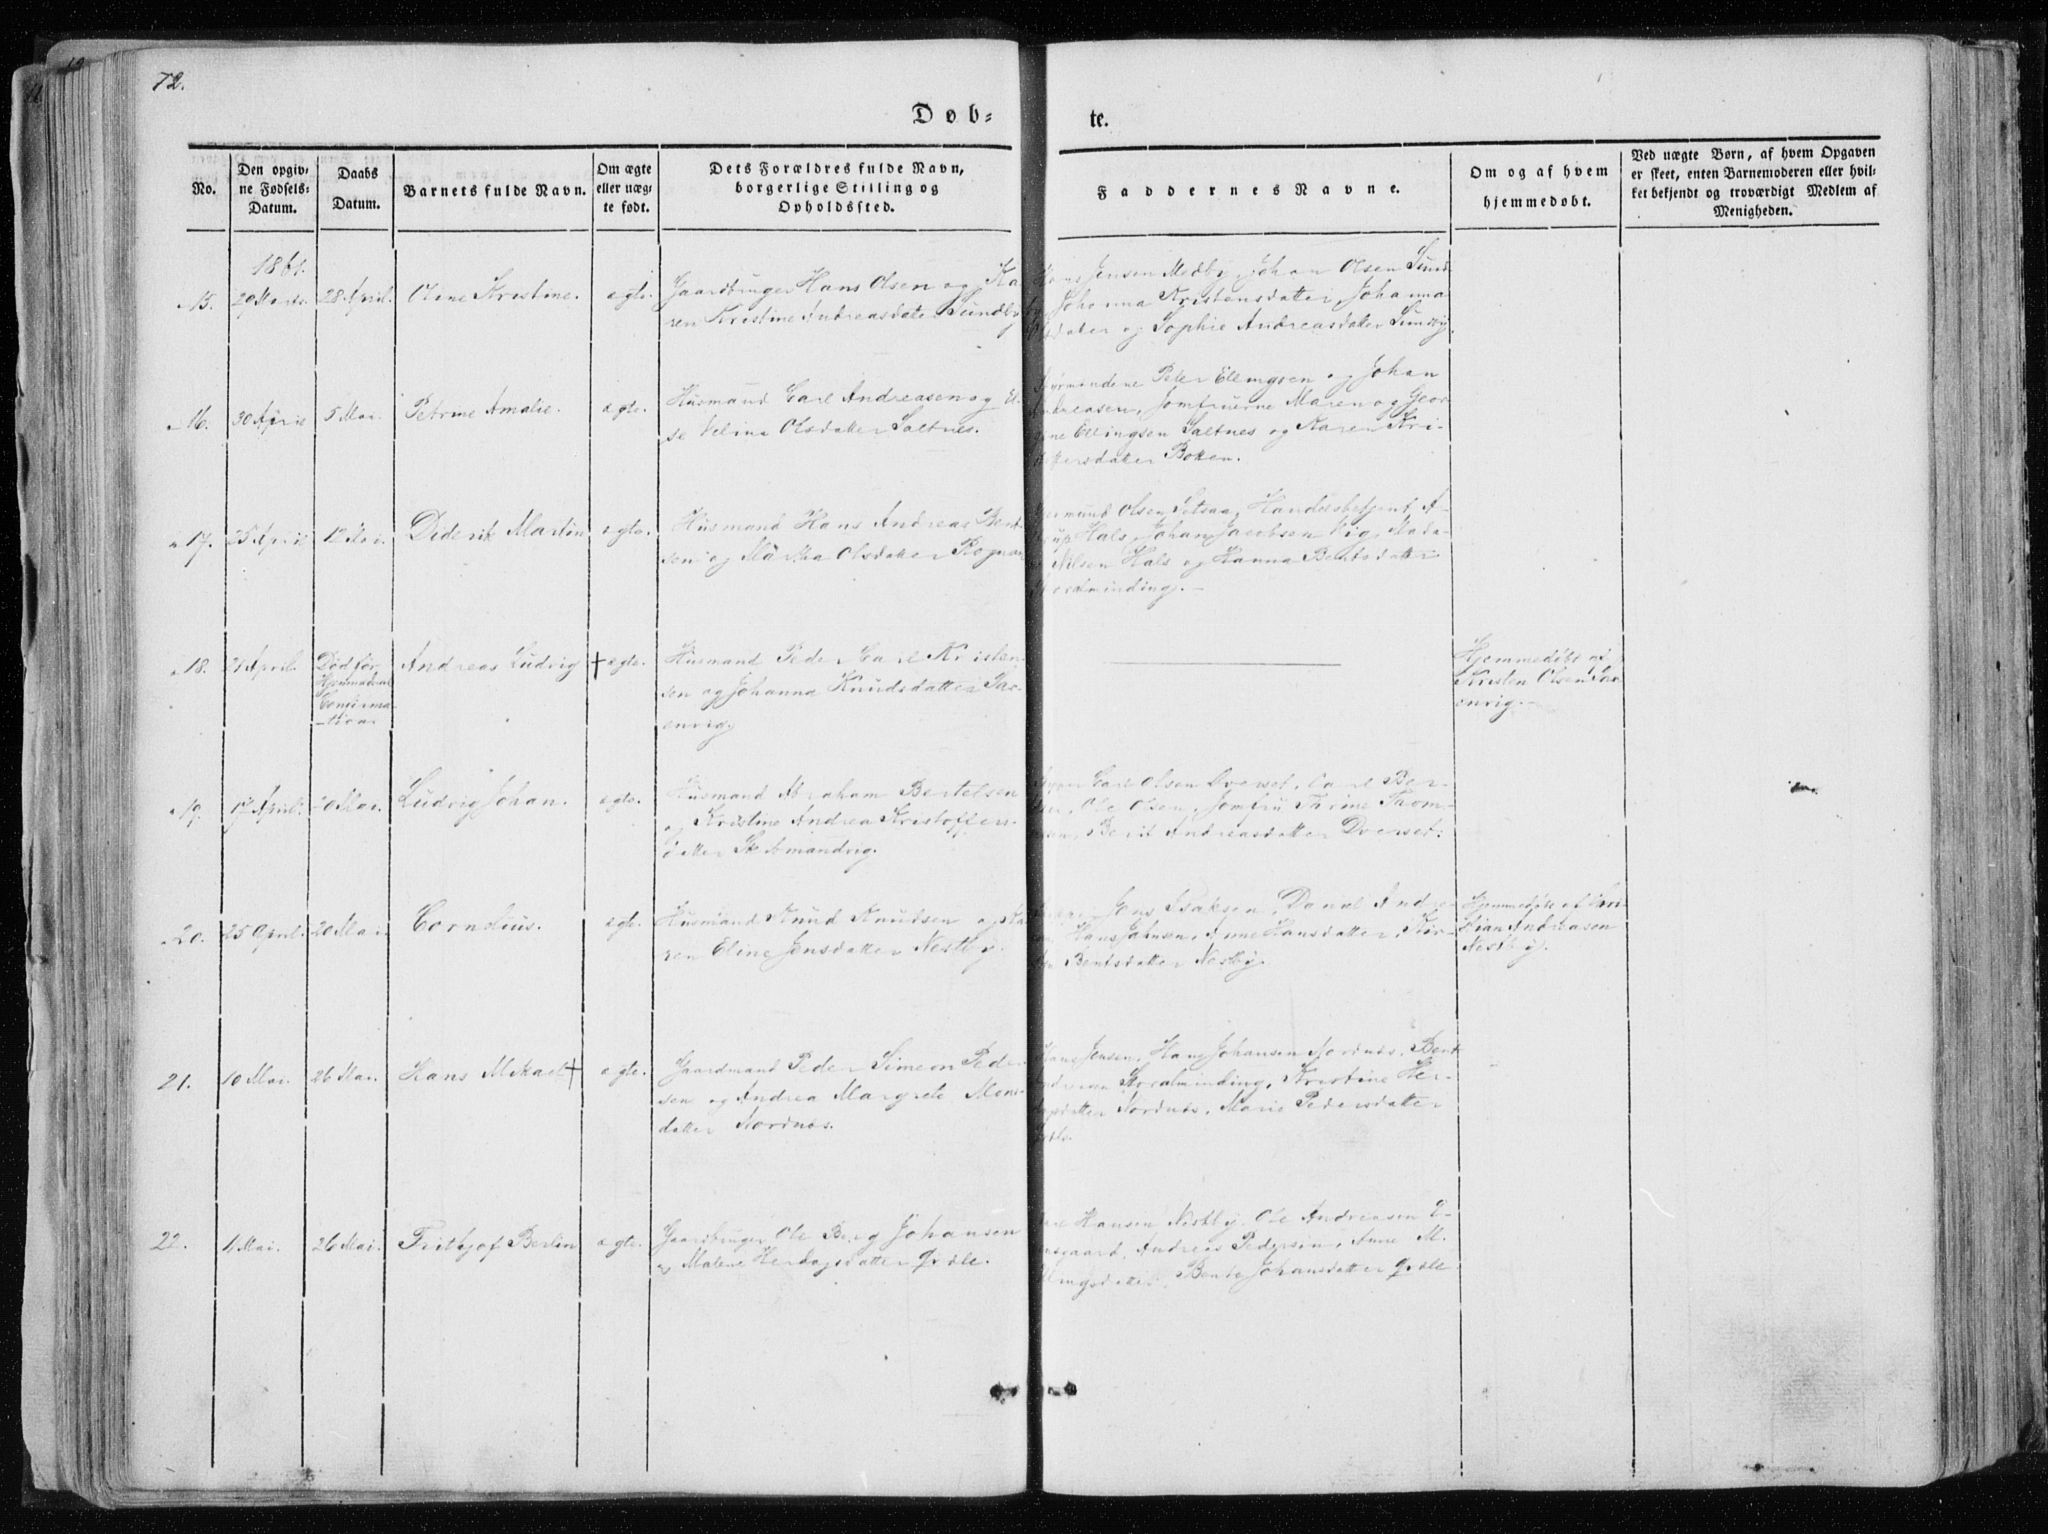 72.
Døb-
te.
No.
Den opgiv-
ne Fødsels-
Datum.
Daabs
Datum.
Barnets fulde Navn.
Om ægte
eller uæg-
te født.
Dets Forældres fulde Navn,
borgerlige Stilling og
Opholdssted.
Faddernes Navne.
Om og af hvem
hjemmedøbt.
Ved uægte Børn, af hvem Opgaven
er skeet, enten Barnemoderen eller hvil-
ket bekjendt og troværdigt Medlem af
Menigheden.
1861.
15.
20 Marts
28 April
Oline Kristine.
ægte.
Gaardbruger Hans Olsen og Ka
ren Kristine Andreasdatter Sundby
Jensen Medby, Johan Olsen Sund
Johanna Kristensdatter, Johanna
og Sophie Andreasdatter Sundby.
16.
30 April
5 Mai.
Petrine Amalie.
ægte.
Husmand Carl Andreasen og El-
se Velina Olsdatter Saltnes.
Peter Ellingsen og Johan
Jomfruerne Maren og Geor
Ellingsen Saltnes og Karen Kri-
Botten.
17.
25 April
12 Mai.
Diderik Martin
ægte.
Husmand Hans Andreas Bent
sen og Martha Olsdatter Rognan
Olsen Setsaa, Handelsbetjent A-
Hals, Johan Jacobsen Vig, Mada-
Nilsen Hals og Hanna Bentsdatter
Storalminding.
18.
April.
Død før
Hjemmedaabs
Confirma-
tion
Andreas Ludvig
† ægte.
Husmand Peder Carl Kristen-
sen og Johanna Knudsdatter Sax-
envig.
Hjemmedøbt af
Kristen Olsen Sax
envig.
19.
17 April.
20 Mai.
Ludvig Johan.
ægte.
Husmand Abraham Bertelsen
og Kristine Andrea Kristoffers-
datter Skamandvig.
Carl Olsen Dverset, Carl Ber-
Ole Olsen, Jomfru Trine Thom-
Berit Andreasdatter Dverset.
20.
25 April.
20 Mai
Cornelius.
ægte.
Husmand Knud Knudsen og Ka
ren Eline Jensdatter Nestby.
Jens Isaksen, Danel Andre
Hans Johnsen, Anne Hansdatter, Kir-
Bentsdatter Nestby.
Hjemmedøbt af Chri
stian Andreasen
Nestby.
21.
10 Mai.
26 Mai.
Hans Mikael †
ægte.
Gaardmand Peder Simeon Peder
sen og Andrea Margrete Mons
datter Nordnæs.
Hans Jensen, Hans Johansen Nordnæs, Bent
Storalminding, Kristine Her-
Nordnæs, Marie Pedersdatter
22.
11 Mai.
26 Mai.
Frithjof Berlin
ægte.
Gaardbruger Ole Berg Johansen
og Malene Herdagsdatter Qvæle.
Hansen Nestby, Ole Andreasen E-
Andreas Pedersen, Anne M.
Bente Johansdatter Qvæle